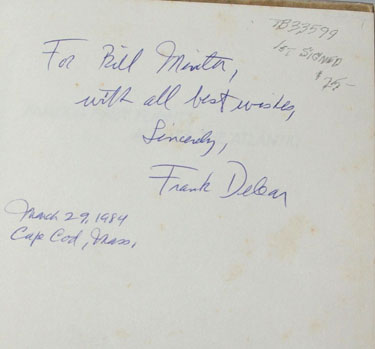 TB33599
1st SIGNED
$25-
For Bill Minter,
with all best wishes,
Sincerely,
Frank
March 29, 1984
Cape Cod, Mass.